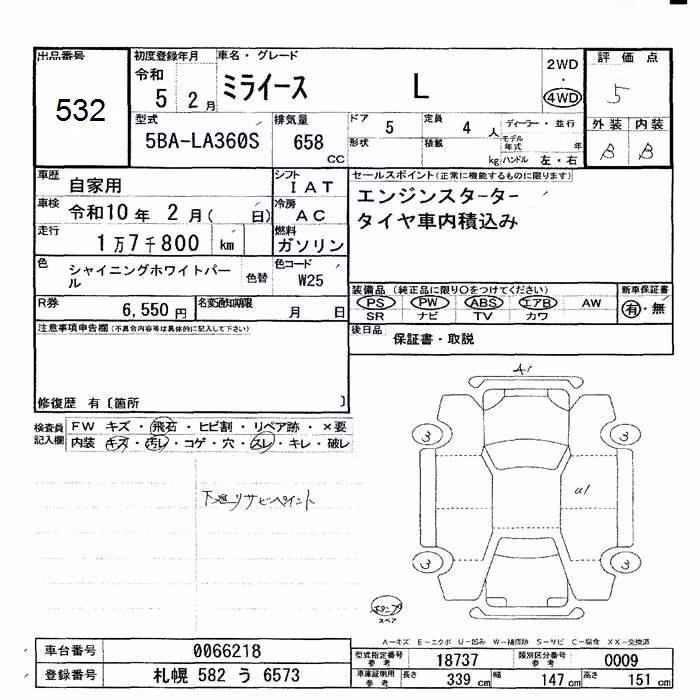 出品番号
532
初度登録年月
令和
5 2月
車名・グレード
ミライース L
2WD
・
4WD
評価点
5
型式
5BA-LA360S
排気量
658
CC
ドア
5
定員
4人
ディーラー・並行
モデル年式 年
形状
積載
kg
ハンドル 左・右
外装 内装
B B
車歴
自家用
シフト
IAT
セールスポイント(正常に機能するものに限ります)
エンジンスターター
タイヤ車内積込み
車検
令和10年 2月( 日)
冷房
AC
走行
1万7千800 km
燃料
ガソリン
色
シャイニングホワイトパール
色替
色コード
W25
装備品(純正品に限り○をつけてください)
PS PW ABS エアB AW
SR ナビ TV カワ
新車保証書
有・無
R券
6,550円
名変通知期限
月 日
後日品
保証書・取説
注意事項申告欄(不具合内容等は具体的に記入して下さい)
修復歴 有〔箇所 〕
検査員記入欄
FW キズ・飛石・ヒビ割・リペア跡・×要
内装 キズ・汚レ・コゲ・穴・スレ・キレ・破レ
下廻りサビペイント
A1
3
3
U1
3
3
スペア
A-キズ E-エクボ U-凹み W-補修跡 S-サビ C-腐食 XX-交換済
車台番号
0066218
登録番号
札幌 582 う 6573
型式指定番号参考
18737
類別区分番号参考
0009
車庫証明用参考
長さ 339 cm
幅 147 cm
高さ 151 cm